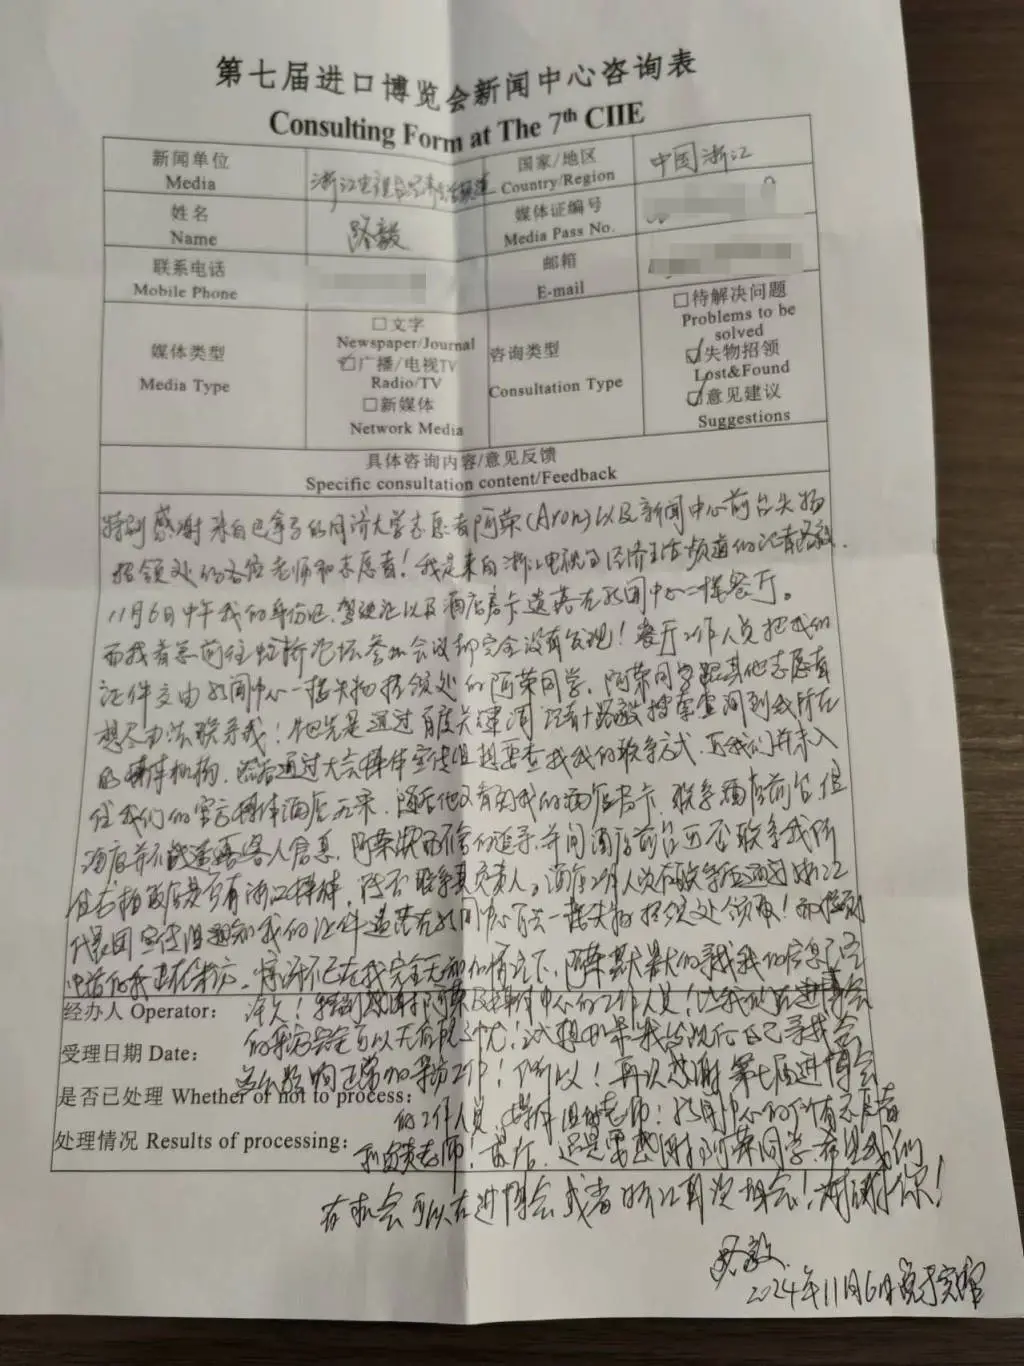 第七届进口博览会新闻中心咨询表
Consulting Form at The 7th CIIE
新闻单位
Media
浙江电视台经济生活频道
国家/地区
Country/Region
中国浙江
姓名
Name
路毅
媒体证编号
Media Pass No.
联系电话
Mobile Phone
邮箱
E-mail
媒体类型
Media Type
□文字
Newspaper/Journal
☑广播/电视TV
Radio/TV
□新媒体
Network Media
咨询类型
Consultation Type
□待解决问题
Problems to be
solved
☑失物招领
Lost&Found
☑意见建议
Suggestions
具体咨询内容/意见反馈
Specific consultation content/Feedback
特别感谢来自巴拿马的同济大学志愿者阿荣(Aron)以及新闻中心前台失物
招领处的各位老师和志愿者!我是来自浙江电视台经济生活频道的记者路毅.
11月6日中午我的身份证、驾驶证以及酒店房卡遗落在新闻中心二楼餐厅。
而我着急前往虹桥论坛参加会议却完全没有发现!餐厅工作人员把我的
证件交由新闻中心一楼失物招领处的阿荣同学,阿荣同学跟其他志愿者
想尽办法联系我!他先是通过百度关键词 记者+路毅 搜索查询到我所在
的媒体机构,然后通过大会媒体宣传组想要查找我的联系方式,而我们并未入
住我们的官方媒体酒店 随后他又看到我的酒店房卡,联系酒店前台,但
酒店并不能透露客人信息,阿荣锲而不舍的追寻,并问酒店前台可否联系我所
住 酒店是否有浙江媒体,可否联系其负责人。酒店工作人员在联系后通知浙江
代表团宣传组通知我的证件遗落在新闻中心 一楼失物招领处领取!
电话 我正在采访,惊讶不已在我完全无知的情况下,阿荣 的寻找我的信息已
经办人 Operator:
受理日期 Date:
是否已处理 Whether of not to process:
处理情况 Results of processing:
许久!特别感谢阿荣及媒体中心的工作人员!让我们在进博会
的采访 可以无后顾之忧!试想如果我发现后自己寻找会
影响正常的采访工作!所以!再次感谢第七届进博会
的工作人员,媒体组的老师,新闻中心的所有志愿者
和 老师!最后,还是要感谢阿荣同学,希望我们
有机会可以在进博会或者浙江再次相会!谢谢你!
路毅
2024年11月6日晚于